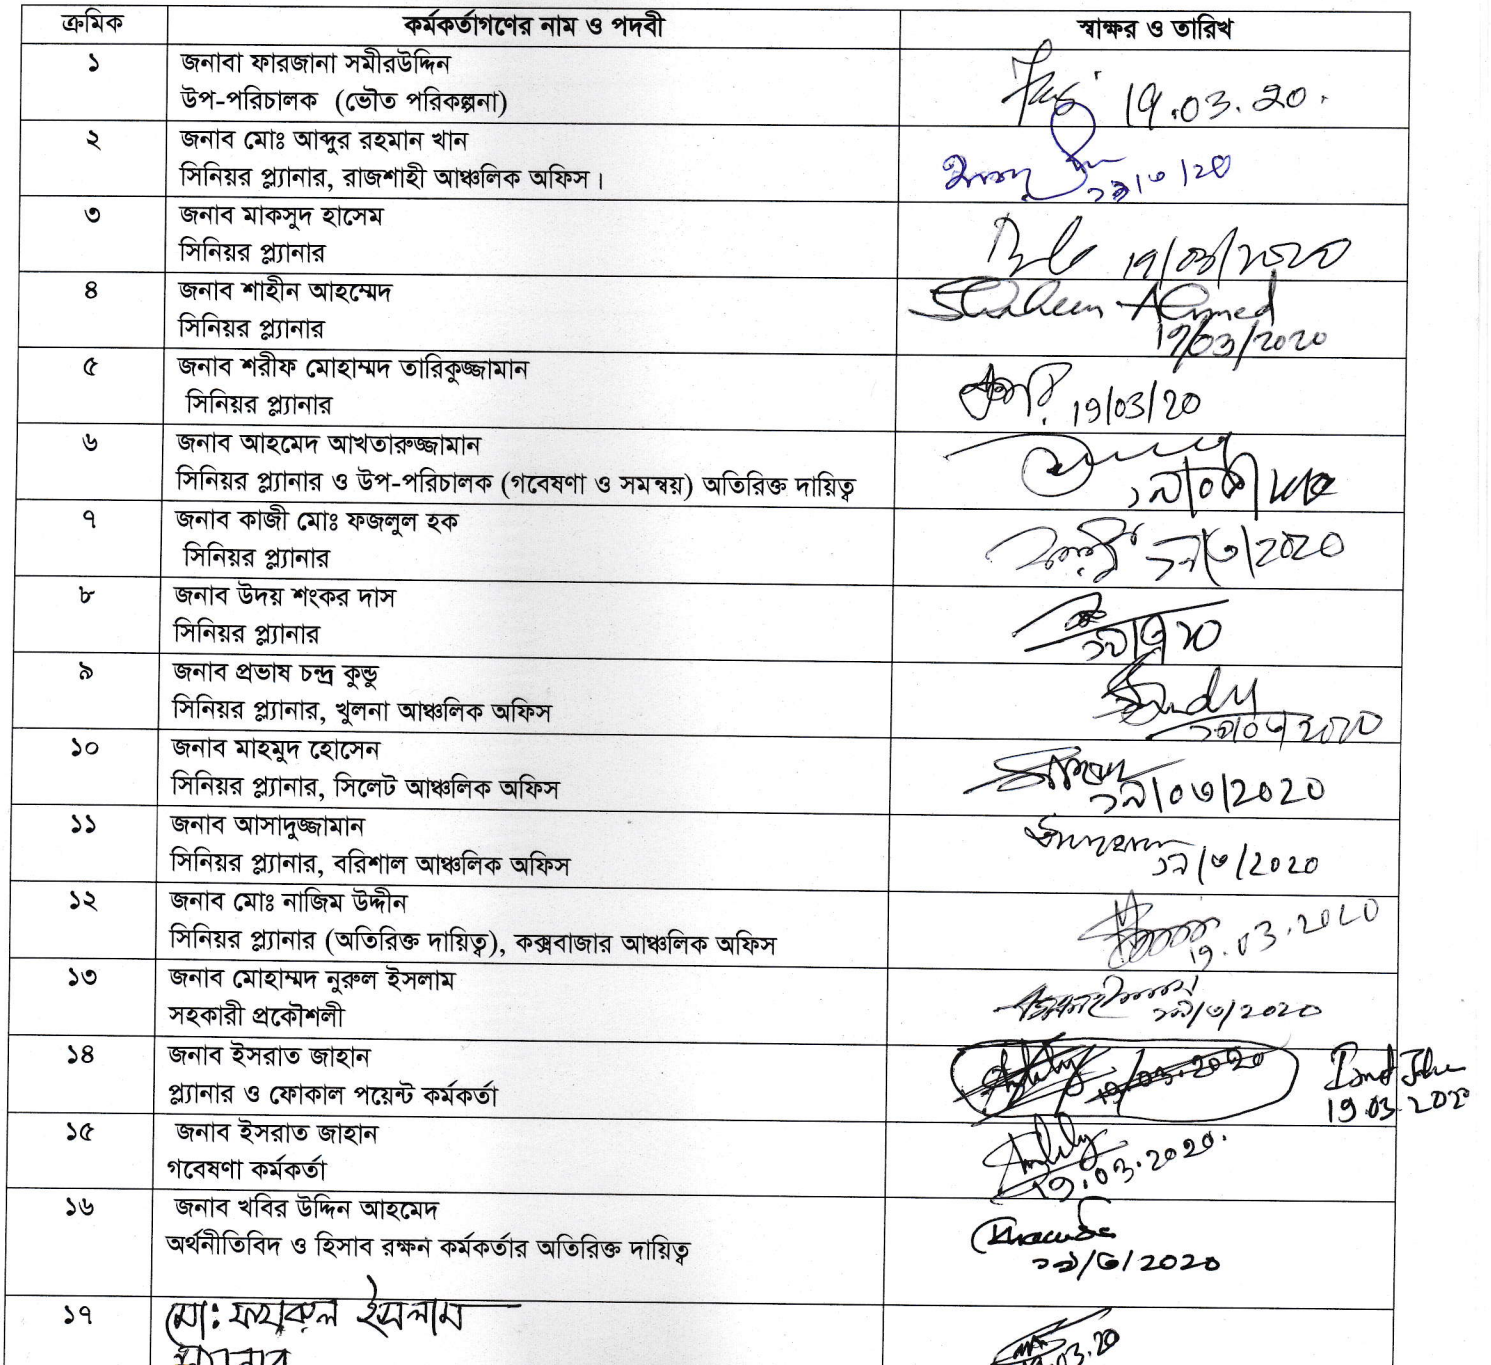 ক্রমিক কর্মকর্তাগণের নাম ও পদবী স্বাক্ষর ও তারিখ
১ জনাবা ফারজানা সমীরউদ্দিন
উপ-পরিচালক (ভৌত পরিকল্পনা) 19.03.20.
২ জনাব মোঃ আব্দুর রহমান খান
সিনিয়র প্ল্যানার, রাজশাহী আঞ্চলিক অফিস।
৩ জনাব মাকসুদ হাসেম
সিনিয়র প্ল্যানার 19/03/2020
৪ জনাব শাহীন আহম্মেদ Shaheen Ahmed
সিনিয়র প্ল্যানার 19/03/2020
৫ জনাব শরীফ মোহাম্মদ তারিকুজ্জামান
সিনিয়র প্ল্যানার 19/03/20
৬ জনাব আহমেদ আখতারুজ্জামান
সিনিয়র প্ল্যানার ও উপ-পরিচালক (গবেষণা ও সমন্বয়) অতিরিক্ত দায়িত্ব
৭ জনাব কাজী মোঃ ফজলুল হক
সিনিয়র প্ল্যানার ১৯/৩/2020
৮ জনাব উদয় শংকর দাস
সিনিয়র প্ল্যানার
৯ জনাব প্রভাষ চন্দ্র কুন্ডু
সিনিয়র প্ল্যানার, খুলনা আঞ্চলিক অফিস ১৯/০৩/2020
১০ জনাব মাহমুদ হোসেন
সিনিয়র প্ল্যানার, সিলেট আঞ্চলিক অফিস ১৯/০৩/2020
১১ জনাব আসাদুজ্জামান
সিনিয়র প্ল্যানার, বরিশাল আঞ্চলিক অফিস ১৯/৩/2020
১২ জনাব মোঃ নাজিম উদ্দীন
সিনিয়র প্ল্যানার (অতিরিক্ত দায়িত্ব), কক্সবাজার আঞ্চলিক অফিস 19.03.2020
১৩ জনাব মোহাম্মদ নুরুল ইসলাম
সহকারী প্রকৌশলী ১৯/৩/2020
১৪ জনাব ইসরাত জাহান
প্ল্যানার ও ফোকাল পয়েন্ট কর্মকর্তা 19/03.2020 19.03.202
১৫ জনাব ইসরাত জাহান
গবেষণা কর্মকর্তা 19.03.2020.
১৬ জনাব খবির উদ্দিন আহমেদ
অর্থনীতিবিদ ও হিসাব রক্ষন কর্মকর্তার অতিরিক্ত দায়িত্ব ১৯/৩/2020
১৭ মো: ফখরুল ইসলাম
প্ল্যানার 19.03.20